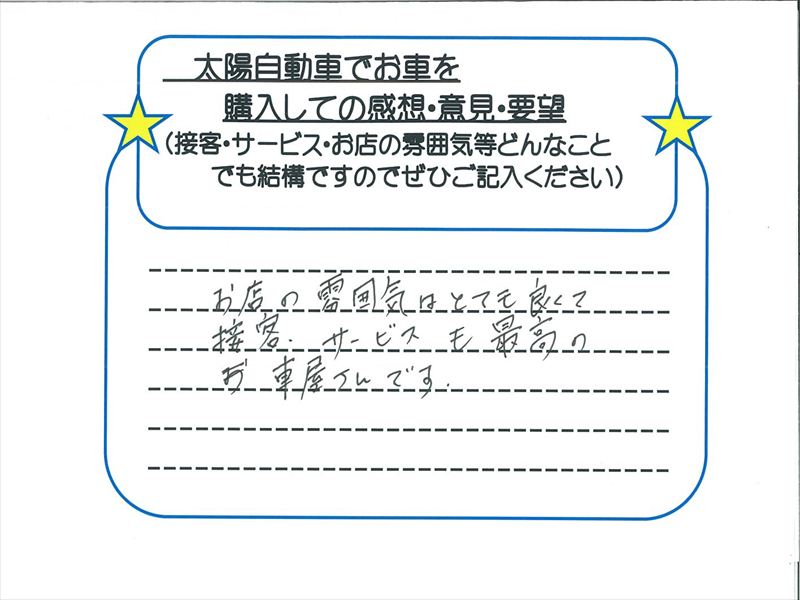 太陽自動車でお車を
購入しての感想・意見・要望
(接客・サービス・お店の雰囲気等どんなこと
でも結構ですのでぜひご記入ください)
お店の雰囲気はとても良くて
接客.サービスも最高の
お車屋さんです.